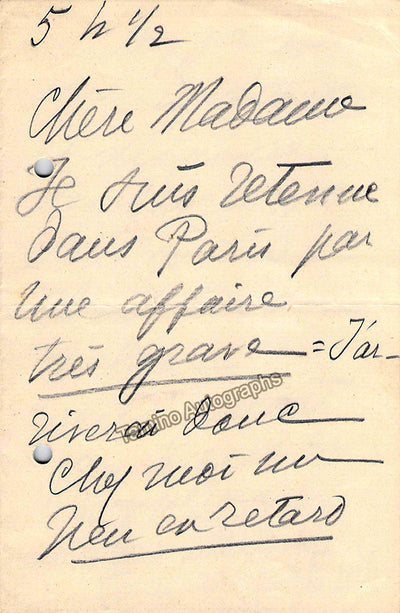 5 h 1/2
Chère Madame
Je suis retenue
dans Paris par
une affaire
très grave = J'ar-
riverai donc
Chez moi un
peu en retard
Tamino Autographs